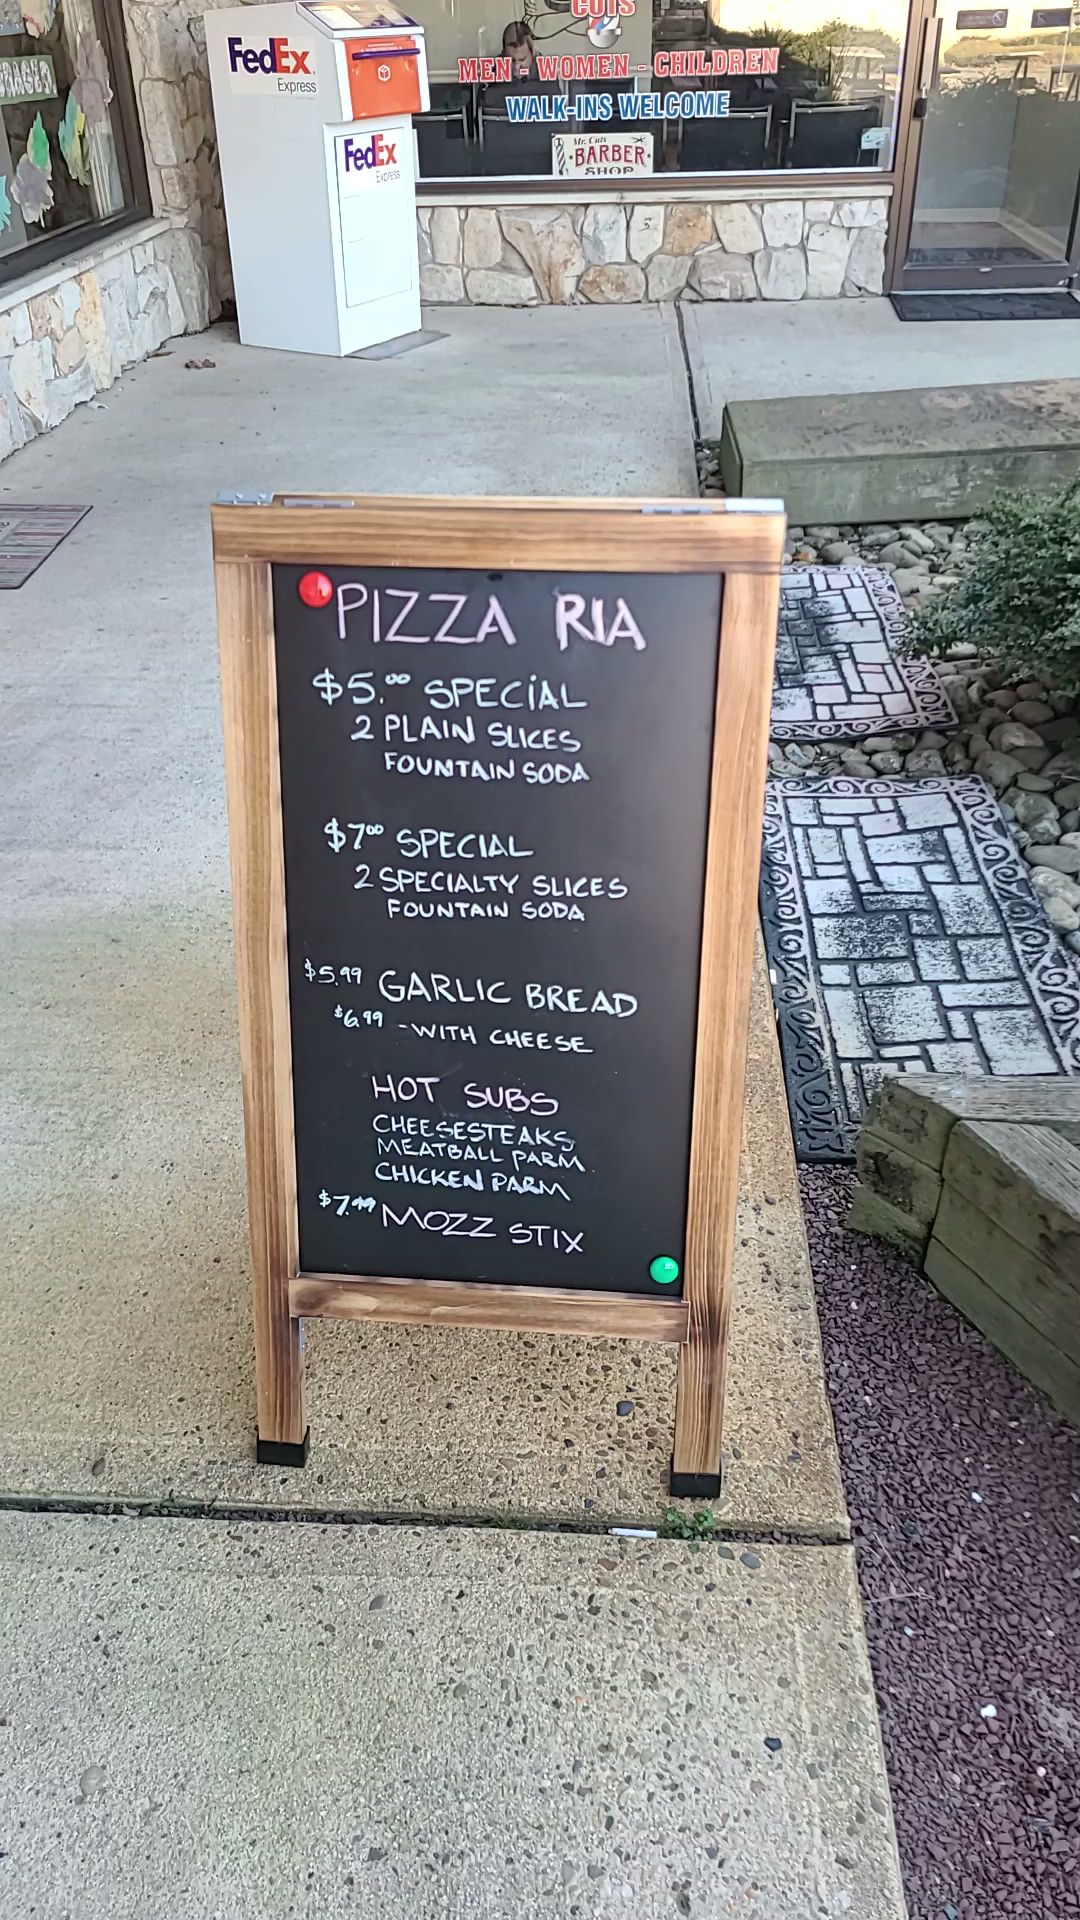 FedEx
Express
FedEx
Express
CUTS
MEN - WOMEN - CHILDREN
WALK-INS WELCOME
Mr. Cuts
BARBER
SHOP
PIZZA RIA
$5.00 SPECIAL
2 PLAIN SLICES
FOUNTAIN SODA
$7.00 SPECIAL
2 SPECIALTY SLICES
FOUNTAIN SODA
$5.99 GARLIC BREAD
$6.99 - WITH CHEESE
HOT SUBS
CHEESESTEAKS
MEATBALL PARM
CHICKEN PARM
$7.99 MOZZ STIX